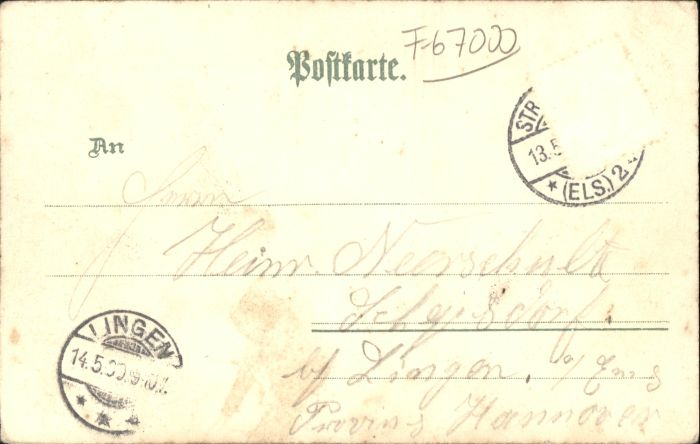 F-67000
Postkarte.
An
STR
13.5
(ELS.) 2
Herrn
Heinr. Neerschulte
b/ Lingen. a/ Ems
Provinz Hannover
LINGEN
14.5.00.9-10.V.